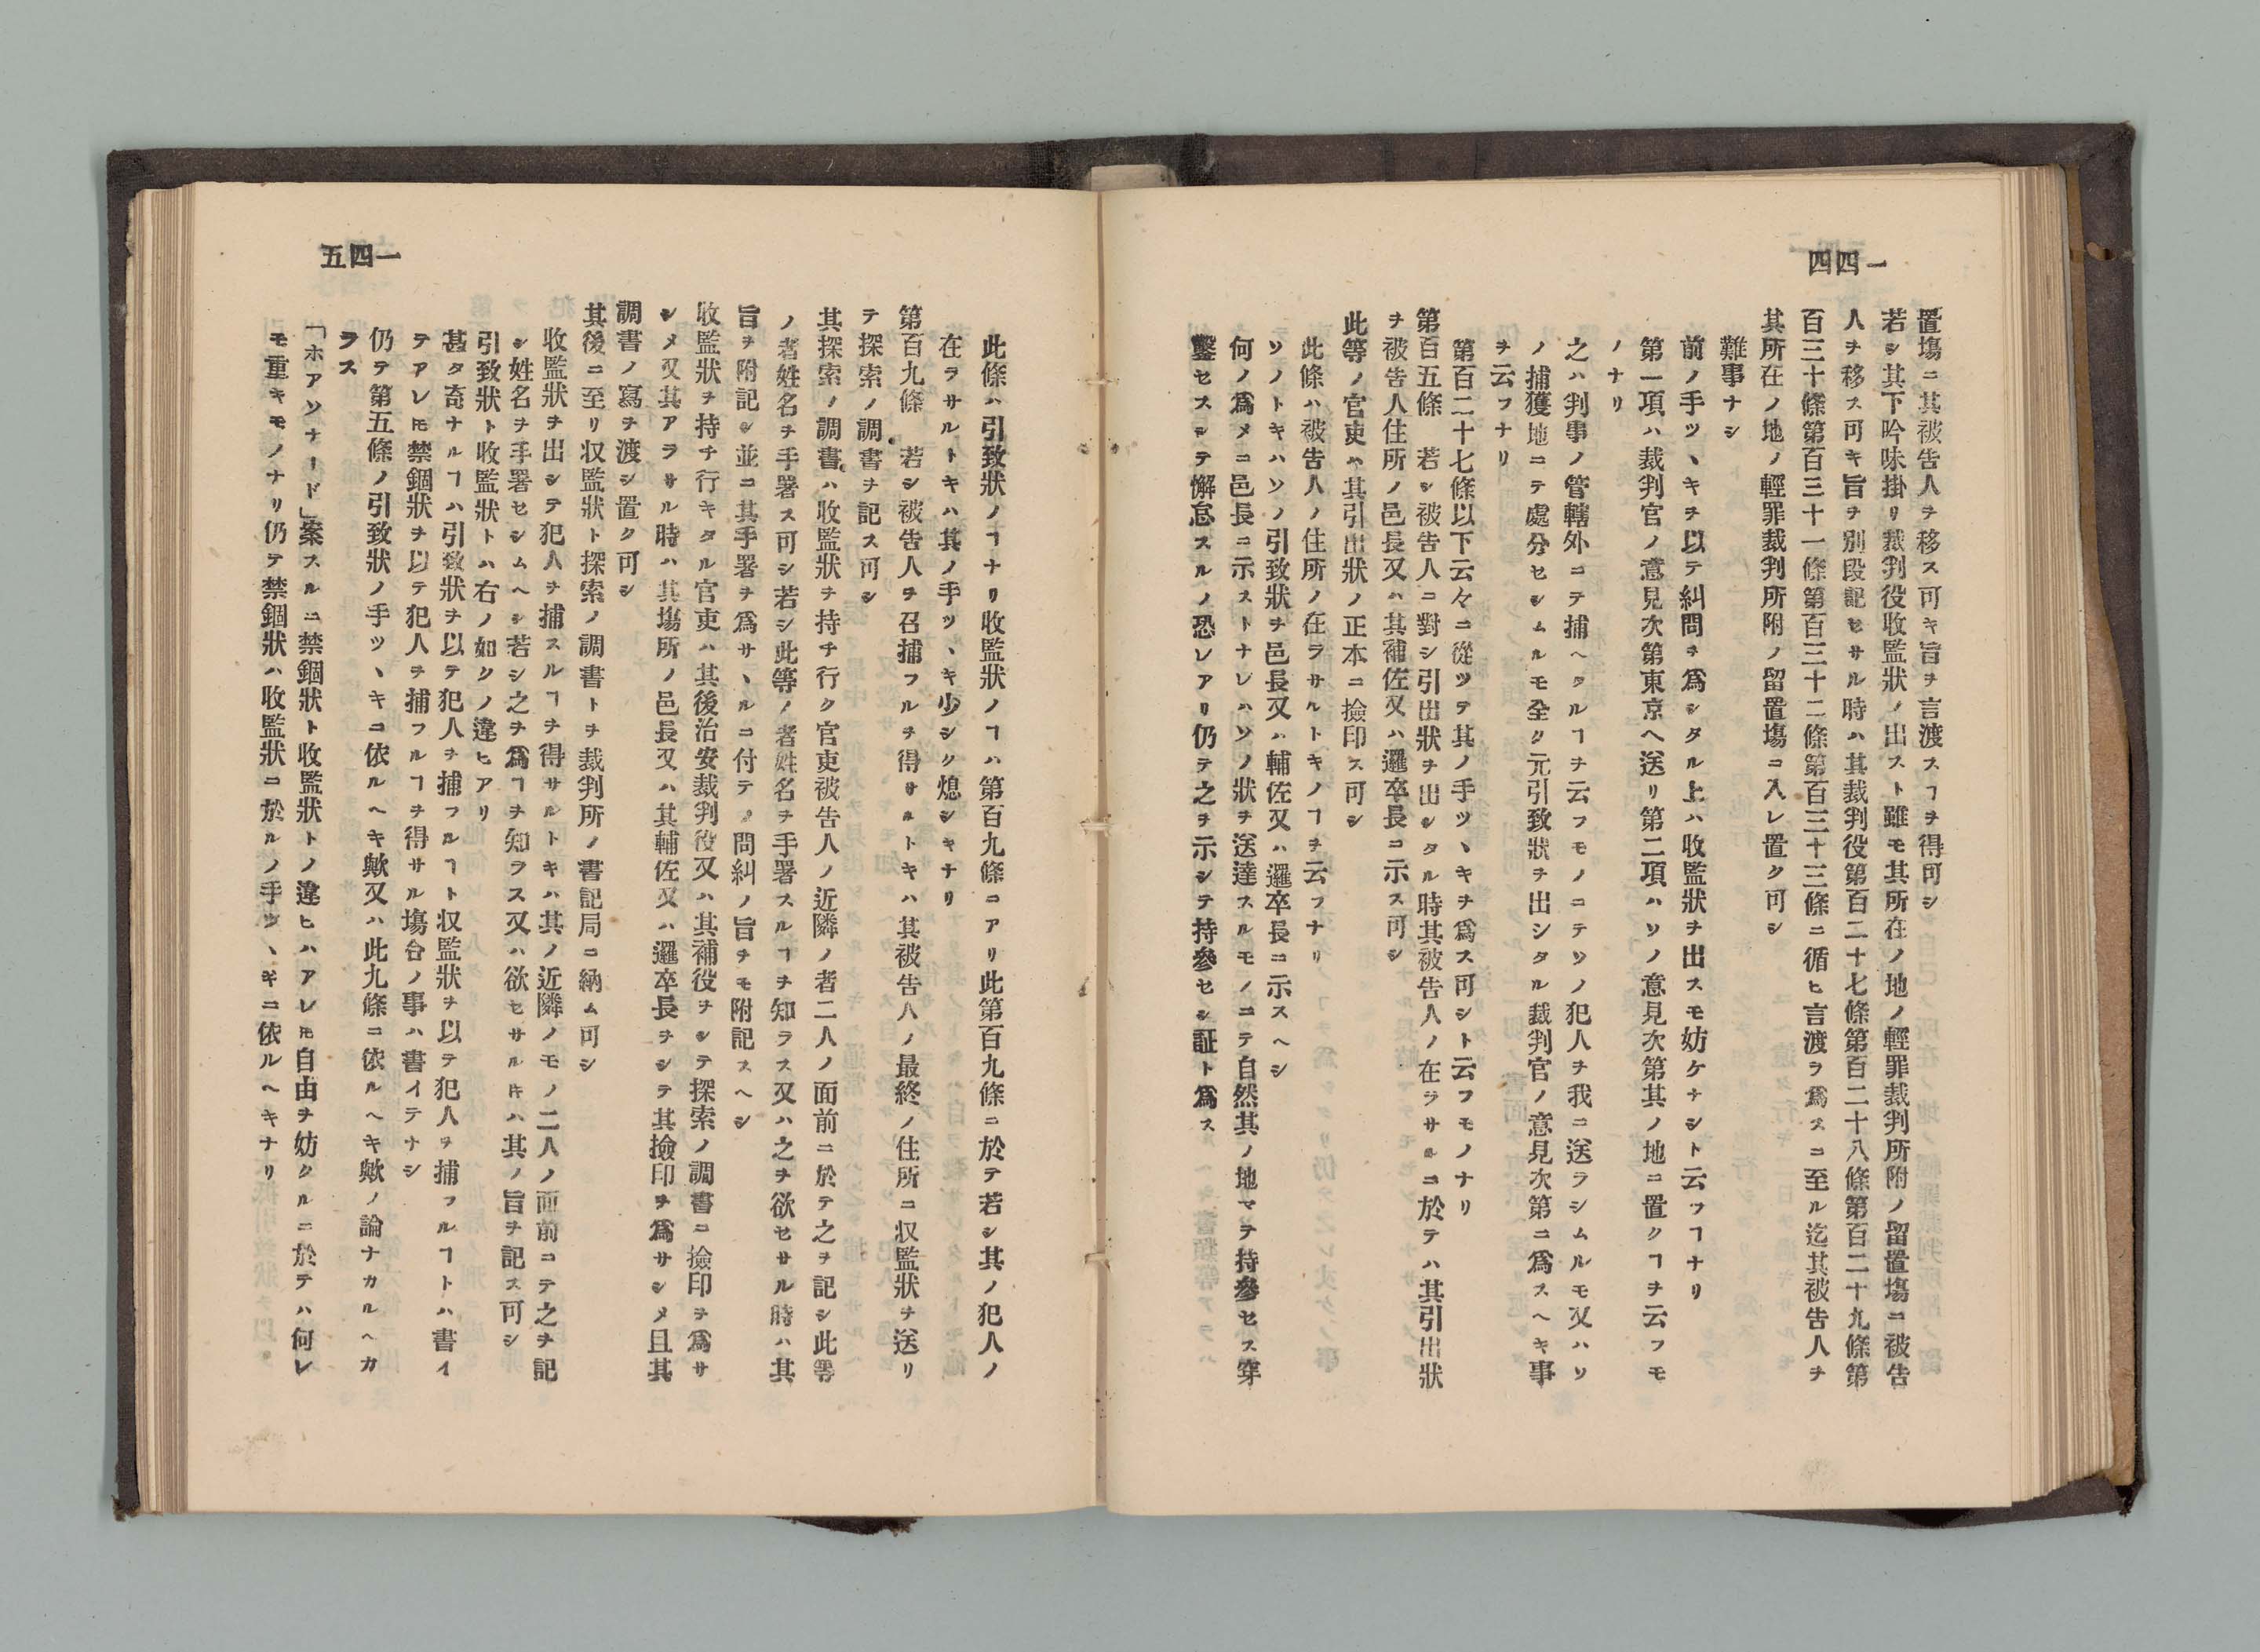 一四四
置塲ニ其被告人ヲ移ス可キ旨ヲ言渡スヿヲ得可シ
若シ其下吟味掛リ裁判役收監狀ノ出スト雖モ其所在ノ地ノ輕罪裁判所附ノ留置塲ニ被告
人ヲ移ス可キ旨ヲ別段記セサル時ハ其裁判役第百二十七條第百二十八條第百二十九條第
百三十條第百三十一條第百三十二條第百三十三條ニ循ヒ言渡ヲ爲スニ至ル迄其被告人ヲ
其所在ノ地ノ輕罪裁判所附ノ留置塲ニ入レ置ク可シ
難事ナシ
前ノ手ツヽキヲ以テ糾問ヲ爲シタル上ハ收監狀ヲ出スモ妨ケナシト云フヿナリ
第一項ハ裁判官ノ意見次第東京ヘ送リ第二項ハソノ意見次第其ノ地ニ置クヿヲ云フモ
ノナリ
之ハ判事ノ管轄外ニテ捕ヘタルヿヲ云フモノニテソノ犯人ヲ我ニ送ラシムルモ又ハソ
ノ捕獲地ニテ處分セシムルモ全ク元引致狀ヲ出シタル裁判官ノ意見次第ニ爲スヘキ事
ヲ云フナリ
第百二十七條以下云々ニ從ツテ其ノ手ツヽキヲ爲ス可シト云フモノナリ
第百五條　若シ被告人ニ對シ引出狀ヲ出シタル時其被告人ノ在ラサルニ於テハ其引出狀
ヲ被告人住所ノ邑長又ハ其補佐又ハ邏卒長ニ示ス可シ
此等ノ官吏ハ其引出狀ノ正本ニ撿印ス可シ
此條ハ被告人ノ住所ノ在ラサルトキノヿヲ云フナリ
ソノトキハソノ引致狀ヲ邑長又ハ輔佐又ハ邏卒長ニ示スヘシ
何ノ爲メニ邑長ニ示ストナレハソノ狀ヲ送達スルモノニテ自然其ノ地マテ持參セス穿
鑿セスシテ懈怠スルノ恐レアリ仍テ之ヲ示シテ持參セシ証ト爲ス
一四五
此條ハ引致狀ノヿナリ收監狀ノヿハ第百九條ニアリ此第百九條ニ於テ若シ其ノ犯人ノ
在ラサルトキハ其ノ手ツヽキ少シク熄シキナリ
第百九條　若シ被告人ヲ召捕フルヲ得サルトキハ其被告人ノ最終ノ住所ニ収監狀ヲ送リ
テ探索ノ調書ヲ記ス可シ
其探索ノ調書ハ收監狀ヲ持チ行ク官吏被告人ノ近隣ノ者二人ノ面前ニ於テ之ヲ記シ此等
ノ者姓名ヲ手署ス可シ若シ此等ノ者姓名ヲ手署スルヿヲ知ラス又ハ之ヲ欲セサル時ハ其
旨ヲ附記シ並ニ其手署ヲ爲サヽルニ付テノ問糾ノ旨ヲモ附記スヘシ
收監狀ヲ持チ行キタル官吏ハ其後治安裁判役又ハ其補役ヲシテ探索ノ調書ニ撿印ヲ爲サ
シメ又其アラサル時ハ其塲所ノ邑長又ハ其輔佐又ハ邏卒長ヲシテ其撿印ヲ爲サシメ且其
調書ノ寫ヲ渡シ置ク可シ
其後ニ至リ収監狀ト探索ノ調書トヲ裁判所ノ書記局ニ納ム可シ
收監狀ヲ出シテ犯人ヲ捕スルヿヲ得サルトキハ其ノ近隣ノモノ二人ノ面前ニテ之ヲ記
シ姓名ヲ手署セシムヘシ若シ之ヲ爲ヿヲ知ラス又ハ欲セサル片ハ其ノ旨ヲ記ス可シ
引致狀ト收監狀トハ右ノ如クノ違ヒアリ
甚タ奇ナルヿハ引致狀ヲ以テ犯人ヲ捕フルヿト収監狀ヲ以テ犯人ヲ捕フルヿトハ書イ
テアレ𪜈禁錮狀ヲ以テ犯人ヲ捕フルヿヲ得サル塲合ノ事ハ書イテナシ
仍テ第五條ノ引致狀ノ手ツヽキニ依ルヘキ歟又ハ此九條ニ依ルヘキ歟ノ論ナカルヘカ
ラス
「ホアソナード」案スルニ禁錮狀ト收監狀トノ違ヒハアレ𪜈自由ヲ妨クルニ於テハ何レ
モ重キモノナリ仍テ禁錮狀ハ收監狀ニ於ルノ手ツヽキニ依ルヘキナリ